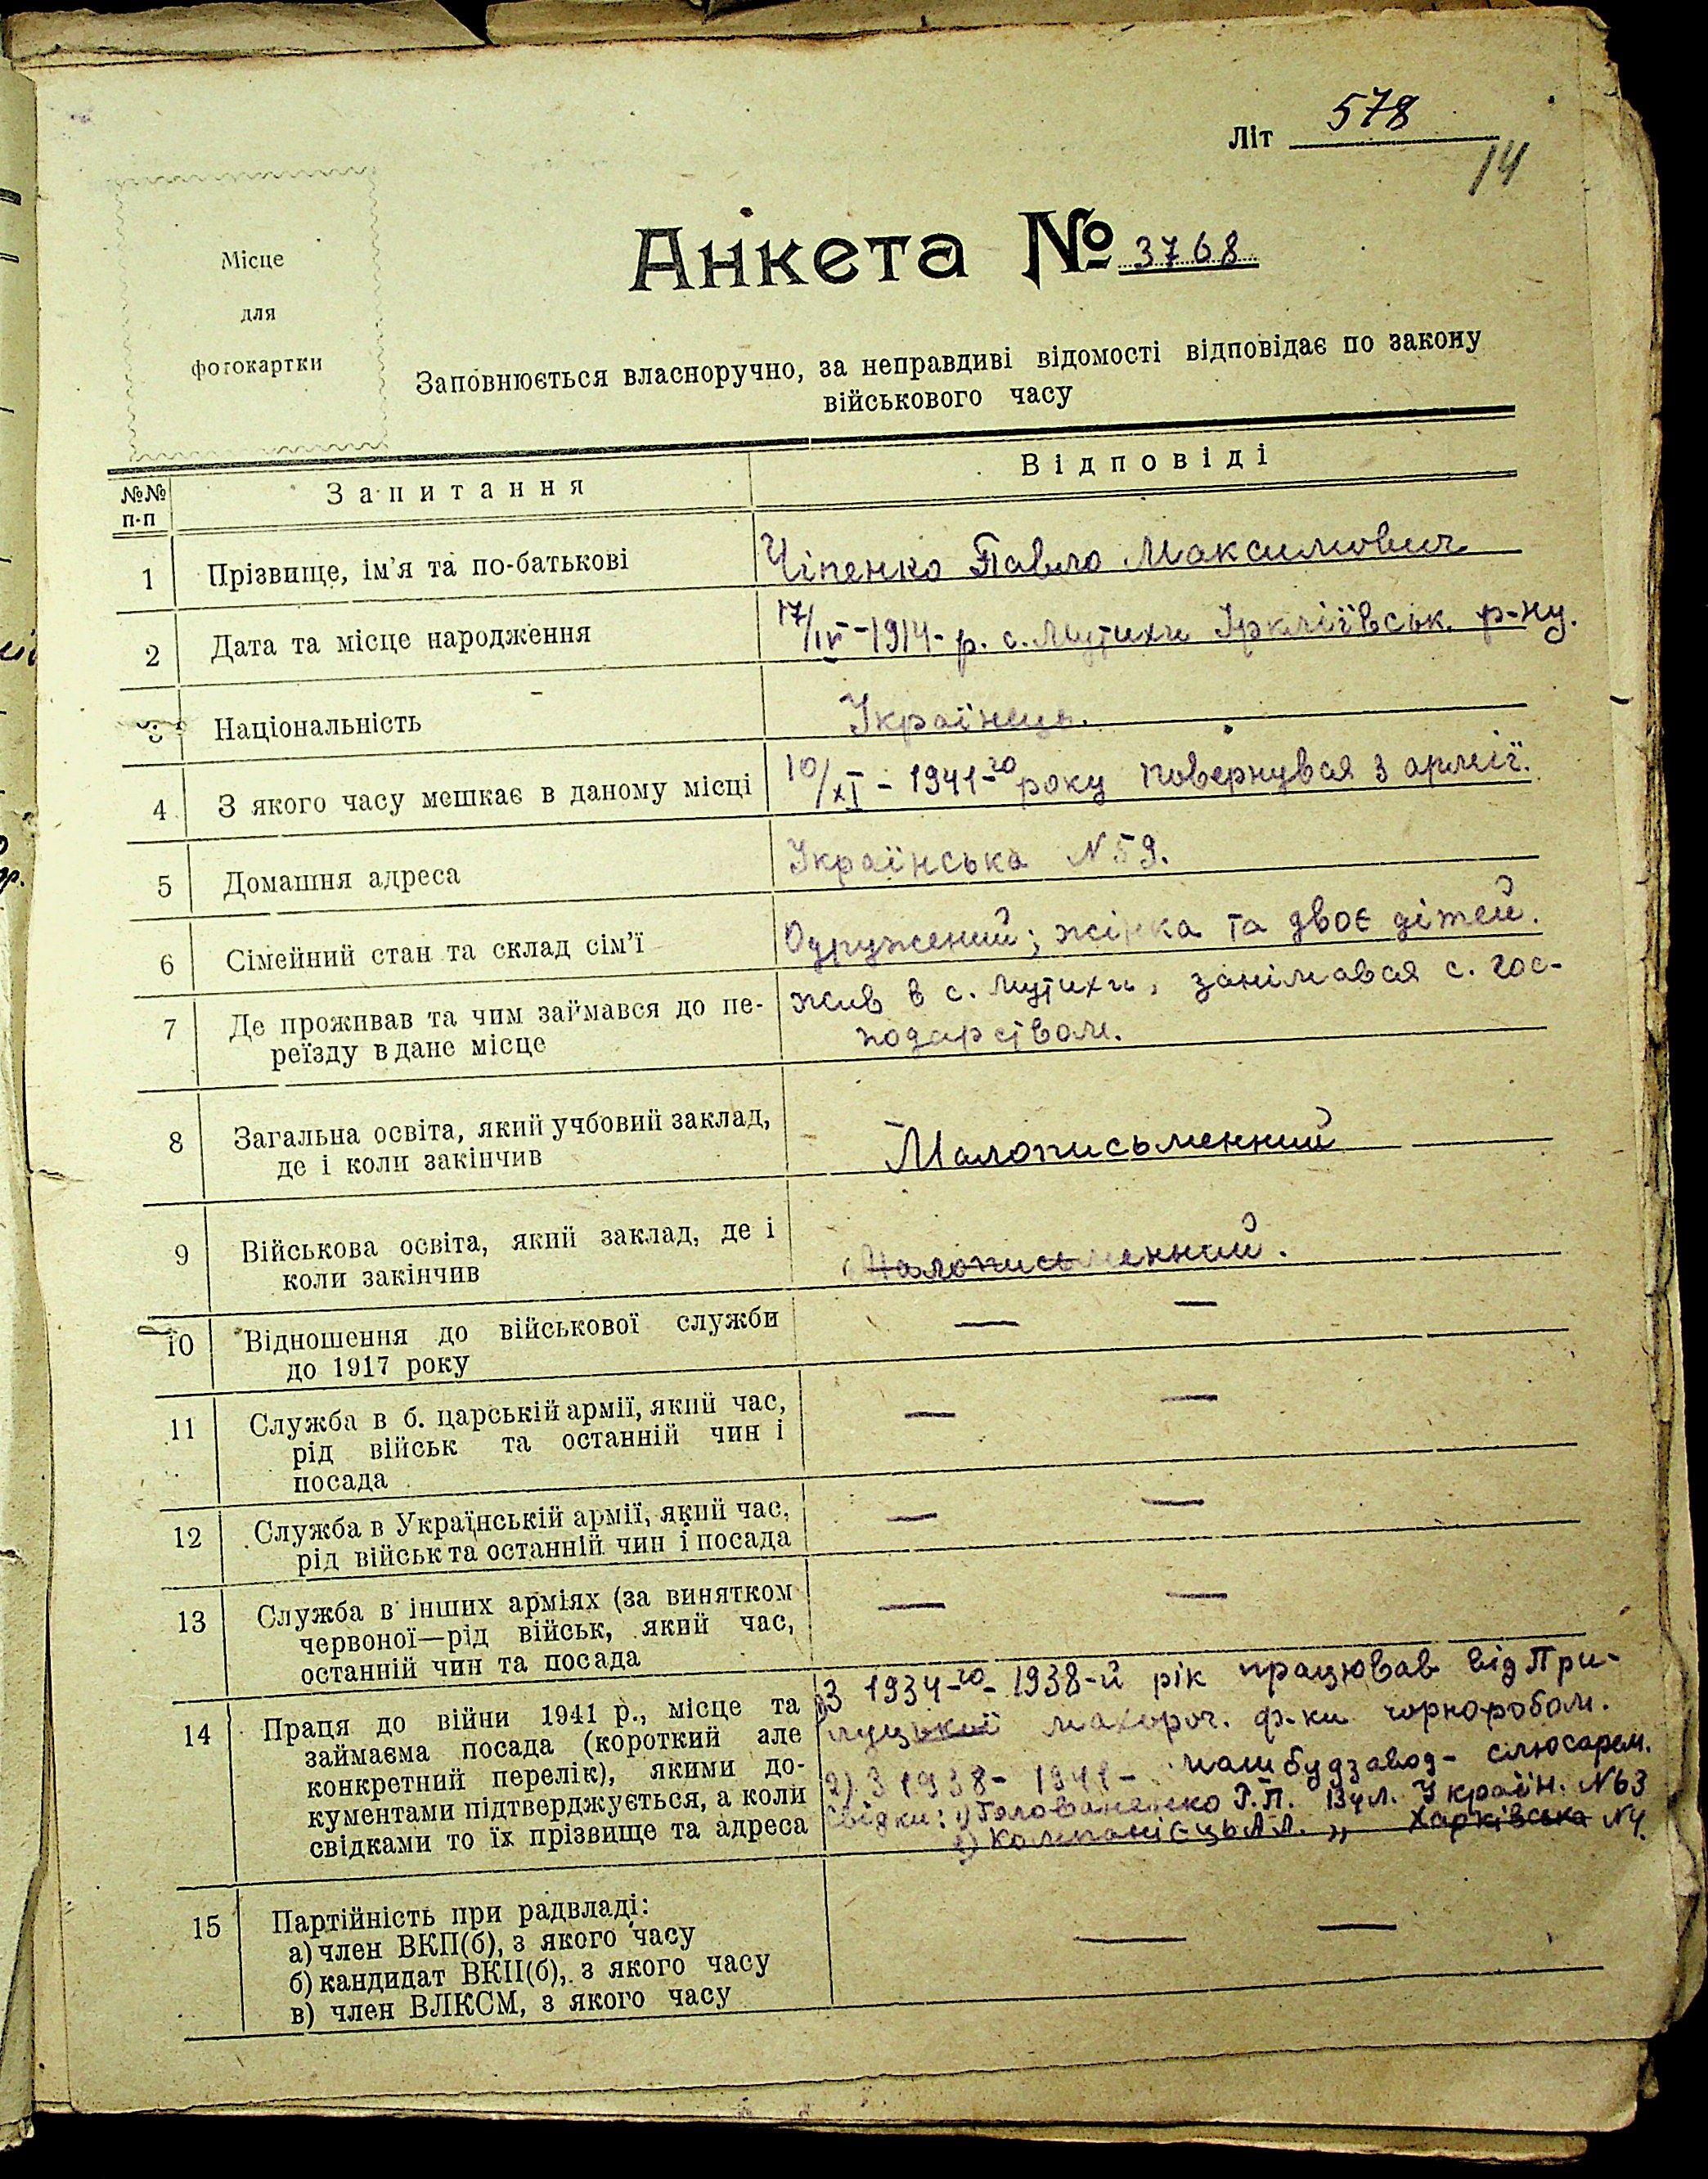 Літ 578
14
Місце
для
фотокартки
Анкета № 3768
Заповнюється власноручно, за неправдиві відомості відповідає по закону
військового часу
№№ п-п Запитання Відповіді
1 Прізвище, ім'я та по-батькові Чіпенко Павло Максимович
2 Дата та місце народження 17/IV-1914-р. с. Мутихи Іркліївськ. р-ну.
3 Національність Українець.
4 З якого часу мешкає в даному місці 10/XI-1941-го року повернувся з армії.
5 Домашня адреса Українська N 59.
6 Сімейний стан та склад сім'ї Одружений; жінка та двоє дітей.
7 Де проживав та чим займався до пе-
реїзду в дане місце
жив в с. Мутихи, занімався с. гос-
подарством.
8 Загальна освіта, який учбовий заклад,
де і коли закінчив
Малописьменний
9 Військова освіта, який заклад, де і
коли закінчив
Малописьменний.
10 Відношення до військової служби
до 1917 року
— —
11 Служба в б. царській армії, який час,
рід військ та останній чин і
посада
— —
12 Служба в Українській армії, який час,
рід військ та останній чин і посада
— —
13 Служба в інших арміях (за винятком
червоної—рід військ, який час,
останній чин та посада
— —
14 Праця до війни 1941 р., місце та
займаєма посада (короткий але
конкретний перелік), якими до-
кументами підтверджується, а коли
свідками то їх прізвище та адреса
З 1934-го-1938-й рік працював від При-
луцької махороч. ф-ки чорноробом.
2) З 1938-1941- машбудзавод- слюсарем.
Свідки: 1) Голованенко Вул. Україн. N63
2) Компанієць А.Л. „ Харківська N4.
15 Партійність при радвладі:
а) член ВКП(б), з якого часу
б) кандидат ВКП(б), з якого часу
в) член ВЛКСМ, з якого часу
— —